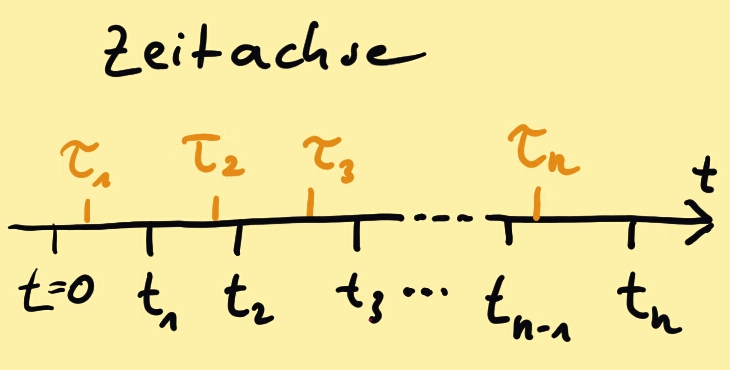 Zeitachse
τ₁ τ₂ τ₃ τₙ
t
t=0 t₁ t₂ t₃ ... tₙ₋₁ tₙ